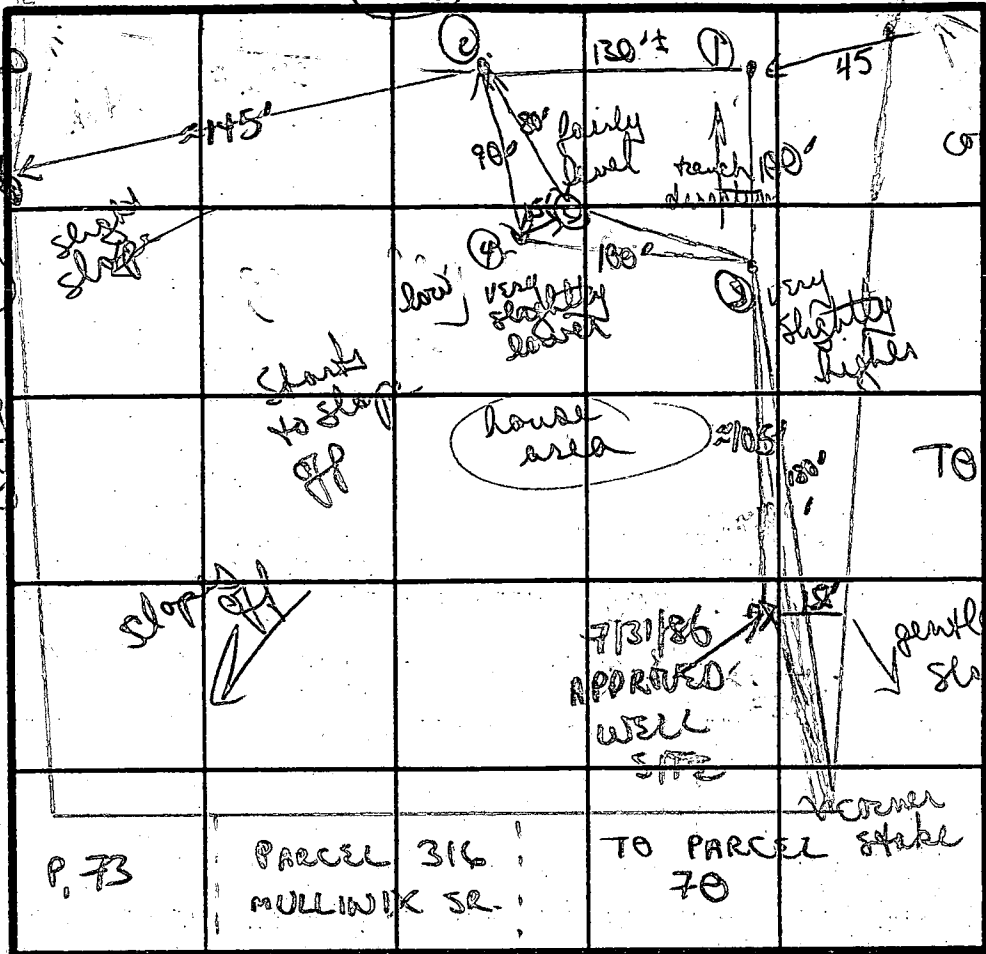 2
130'±
1
45
≈145'
80'
90'
fairly
level
trench
100'
co
slight
slope
15'
4
100'
3
low
very
slightly
lower
very
slightly
higher
starts
to slope
off
house
area
≈105'
180'
TO
slopes
off
7/31/86
APPROVED
WELL
SITE
18'
gentle
corner
stake
P. 73
PARCEL 316
MULLINIX SR.
TO PARCEL
70